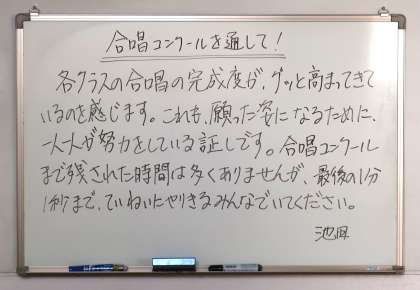 合唱コンクールを通して！
各クラスの合唱の完成度が、グッと高まってきて
いるのを感じます。これも、願った姿になるために、
一人一人が努力をしている証しです。合唱コンクール
まで残された時間は多くありませんが、最後の1分
1秒まで、ていねいにやりきるみんなでいてください。
池田